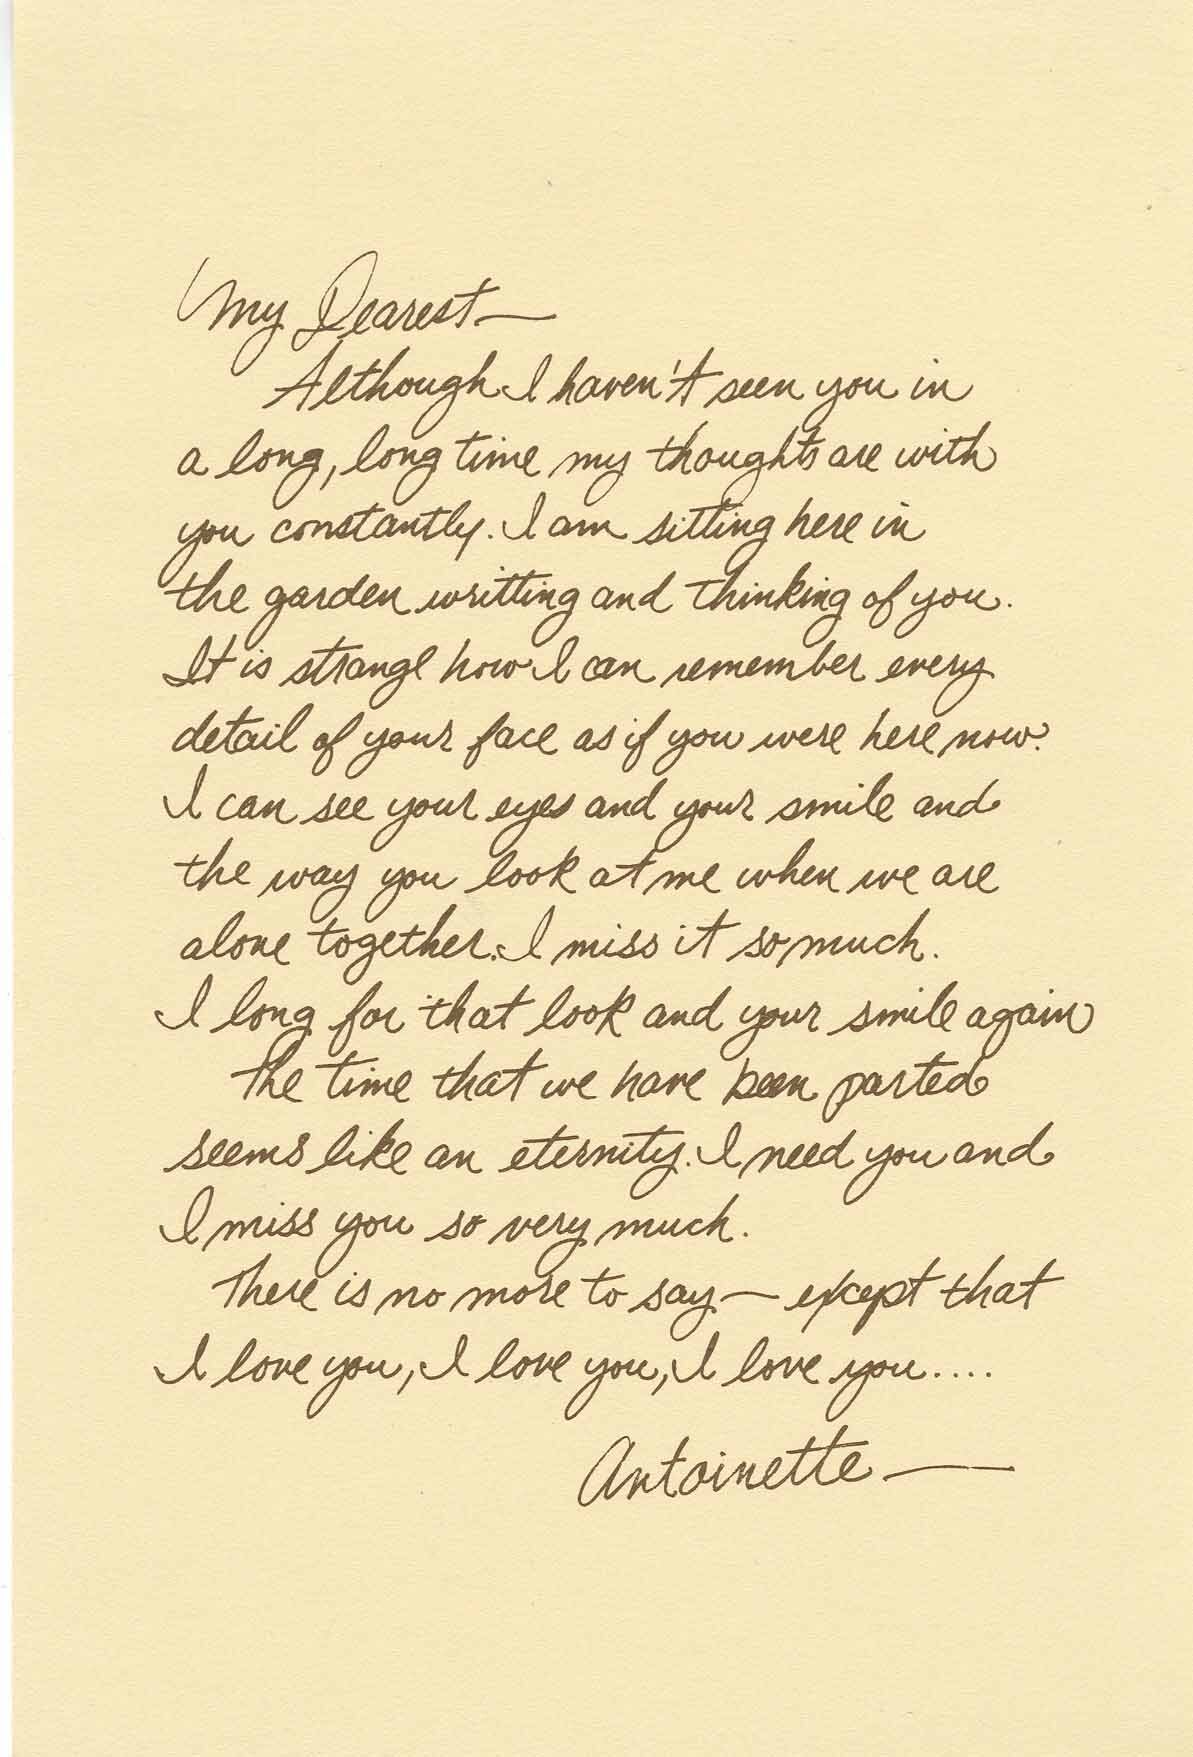 My Dearest—
Although I haven't seen you in
a long, long time my thoughts are with
you constantly. I am sitting here in
the garden writting and thinking of you.
It is strange how I can remember every
detail of your face as if you were here now.
I can see your eyes and your smile and
the way you look at me when we are
alone together. I miss it so much.
I long for that look and your smile again
The time that we have been parted
seems like an eternity. I need you and
I miss you so very much.
There is no more to say — exkept that
I love you, I love you, I love you....
Antoinette —